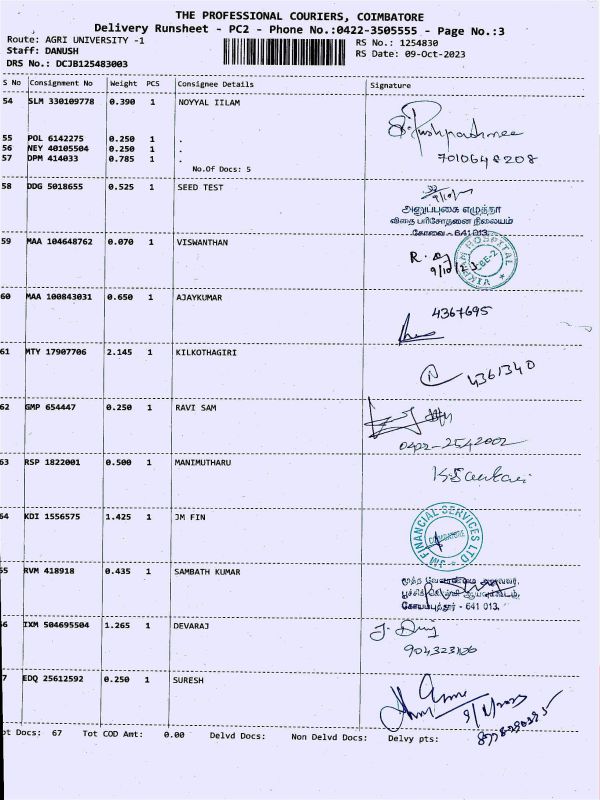 THE PROFESSIONAL COURIERS, COIMBATORE
Delivery Runsheet - PC2 - Phone No.:0422-3505555 - Page No.:3
Route: AGRI UNIVERSITY -1
RS No.: 1254830
Staff: DANUSH
RS Date: 09-Oct-2023
DRS No.: DCJB125483003
S No Consignment No Weight PCS Consignee Details Signature
54 SLM 330109778 0.390 1 NOYYAL IILAM
55 POL 6142275 0.250 1 .
56 NEY 40105504 0.250 1 .
57 DPM 414033 0.785 1 .
7010648208
No.Of Docs: 5
58 DDG 5018655 0.525 1 SEED TEST
9/10/
விதை பரிசோதனை நிலையம்
கோவை - 641 013.
59 MAA 104648762 0.070 1 VISWANTHAN
HOSPITAL
CBE-2
60 MAA 100843031 0.650 1 AJAYKUMAR
4367695
61 MTY 17907706 2.145 1 KILKOTHAGIRI
4361340
62 GMP 654447 0.250 1 RAVI SAM
0422-2542002
63 RSP 1822001 0.500 1 MANIMUTHARU
64 KDI 1556575 1.425 1 JM FIN
JM FINANCIAL SERVICES LTD
COIMBATORE
65 RVM 418918 0.435 1 SAMBATH KUMAR
கோயம்புத்தூர் - 641 013.
66 IXM 504695504 1.265 1 DEVARAJ
7 EDQ 25612592 0.250 1 SURESH
ot Docs: 67 Tot COD Amt: 0.00 Delvd Docs: Non Delvd Docs: Delvy pts: